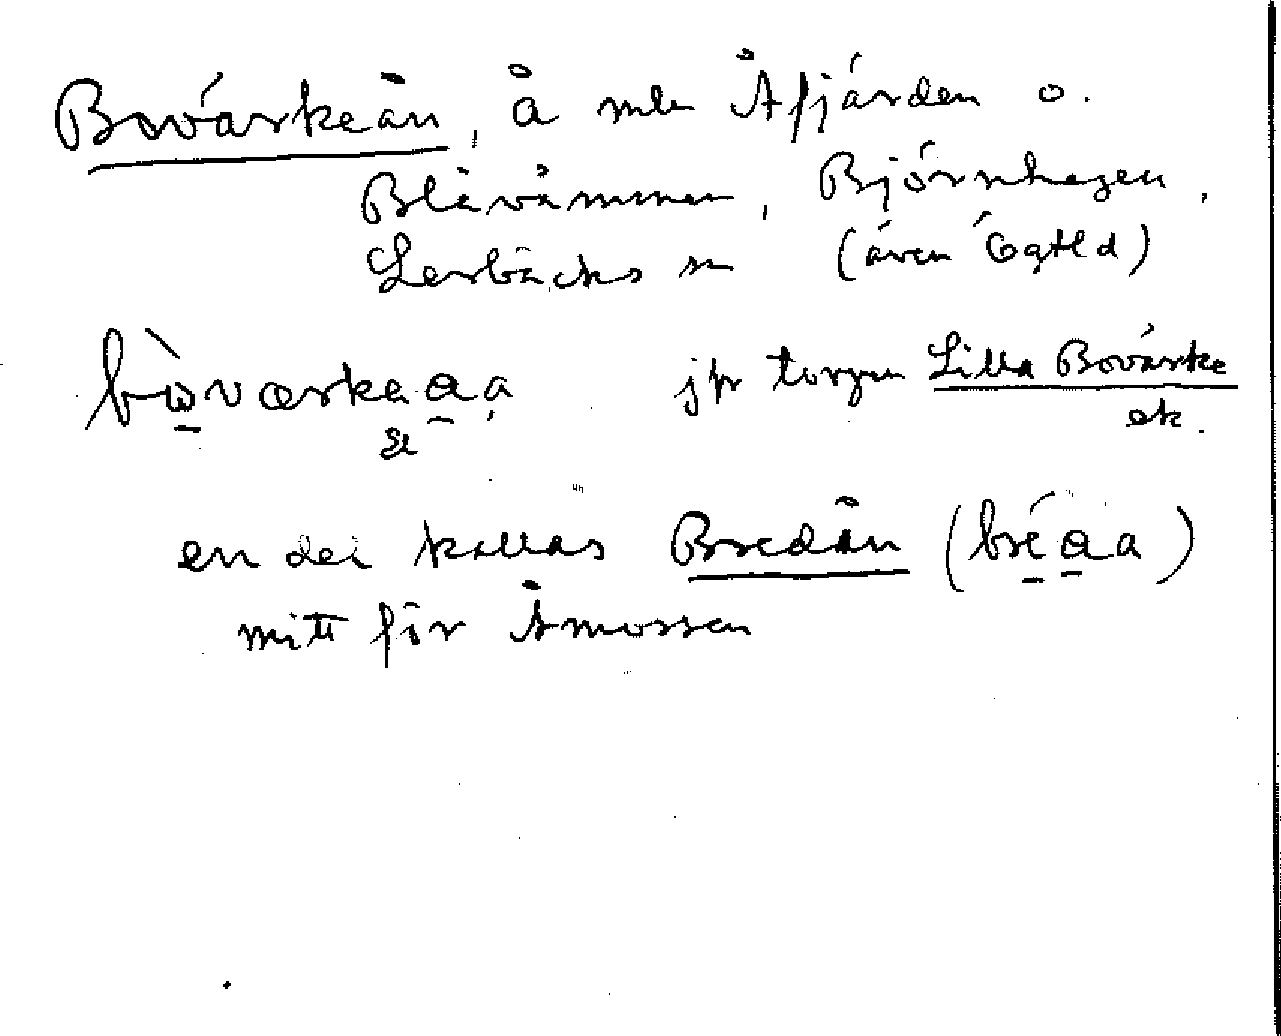 Bovärkeån, å mln Åfjärden o.
Blåvämmen, Björnhagen,
Lerbäcks sn (även Ögtld)
bòværkeaa jfr torpen Lilla Bovärke
ek.
en del kallas Bredån (bréaa)
mitt för Åmossen